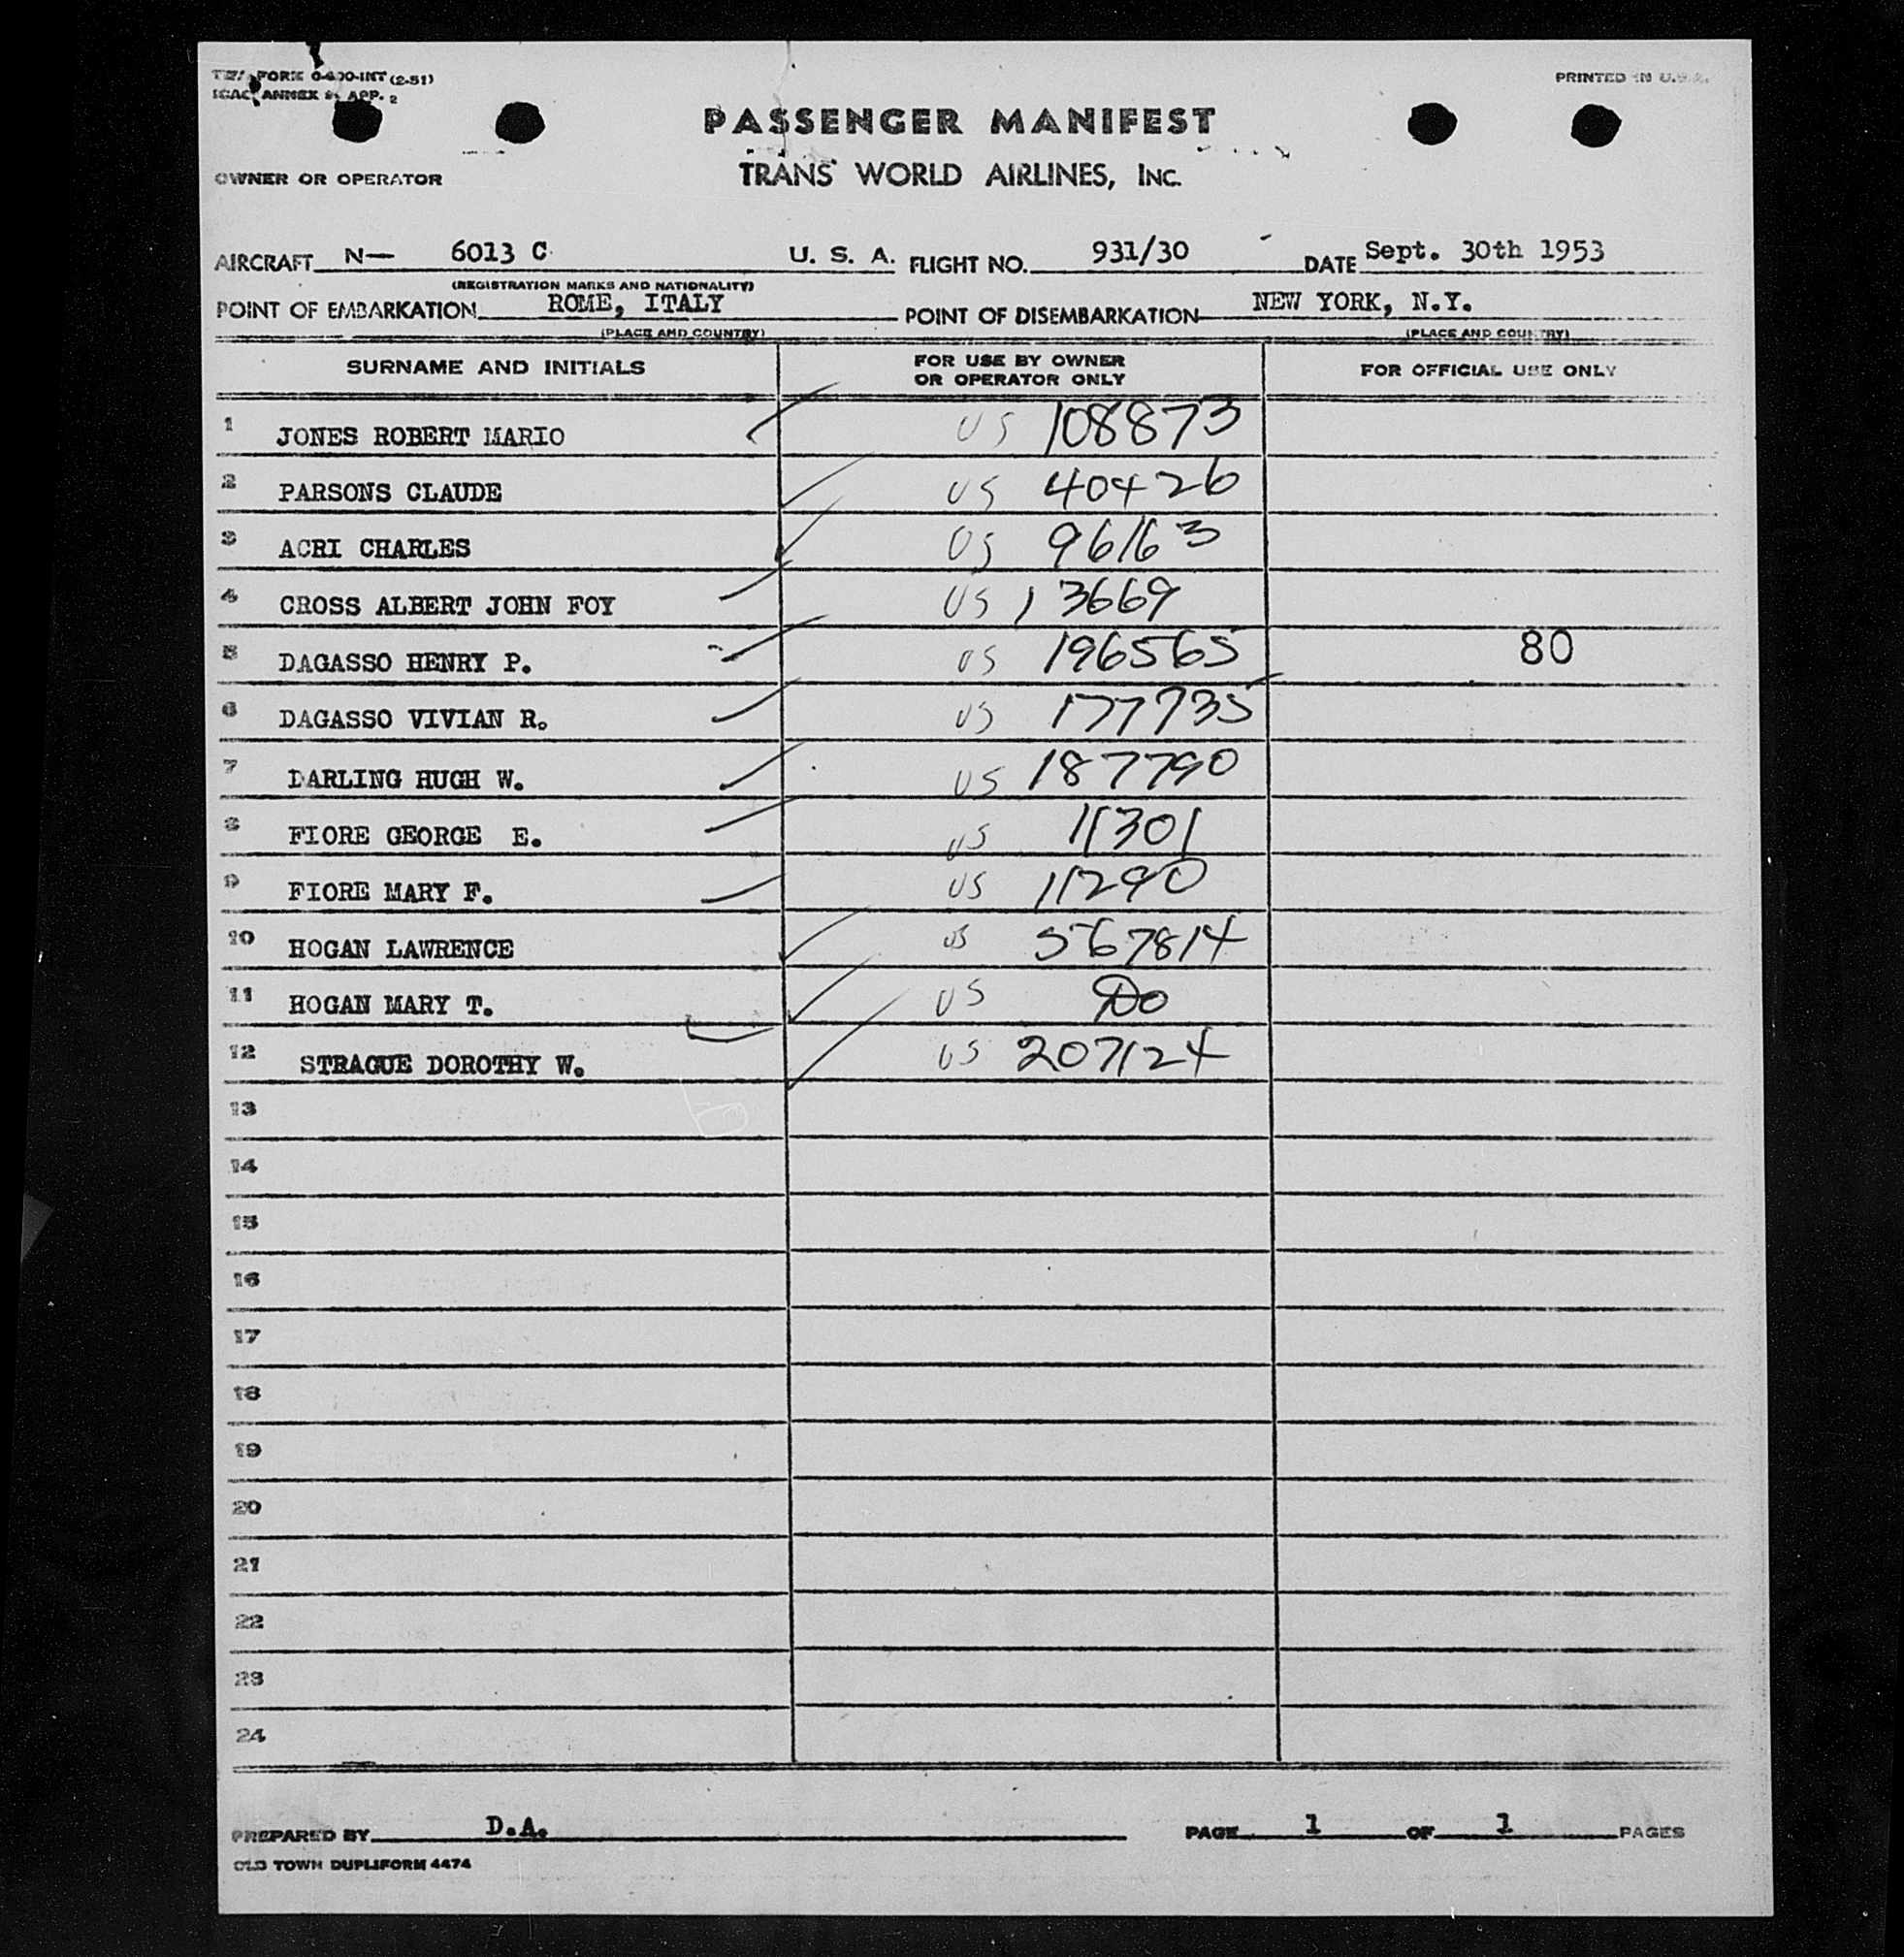 TWA FORM O-400-INT (2-51)
ICAO ANNEX 9, APP. 2
PRINTED IN U.S.A.
PASSENGER MANIFEST
OWNER OR OPERATOR TRANS WORLD AIRLINES, INC.
AIRCRAFT N— 6013 C U. S. A. FLIGHT NO. 931/30 DATE Sept. 30th 1953
(REGISTRATION MARKS AND NATIONALITY)
POINT OF EMBARKATION ROME, ITALY POINT OF DISEMBARKATION NEW YORK, N.Y.
(PLACE AND COUNTRY) (PLACE AND COUNTRY)
SURNAME AND INITIALS FOR USE BY OWNER OR OPERATOR ONLY FOR OFFICIAL USE ONLY
1 JONES ROBERT MARIO US 108873
2 PARSONS CLAUDE US 40426
3 ACRI CHARLES US 96163
4 CROSS ALBERT JOHN FOY US 13669
5 DAGASSO HENRY P. US 196565 80
6 DAGASSO VIVIAN R. US 177735
7 DARLING HUGH W. US 187790
8 FIORE GEORGE E. US 11301
9 FIORE MARY F. US 11290
10 HOGAN LAWRENCE US 567814
11 HOGAN MARY T. US Do
12 STRAGUE DOROTHY W. US 207124
13
14
15
16
17
18
19
20
21
22
23
24
PREPARED BY D.A. PAGE 1 OF 1 PAGES
OLD TOWN DUPLIFORM 4474